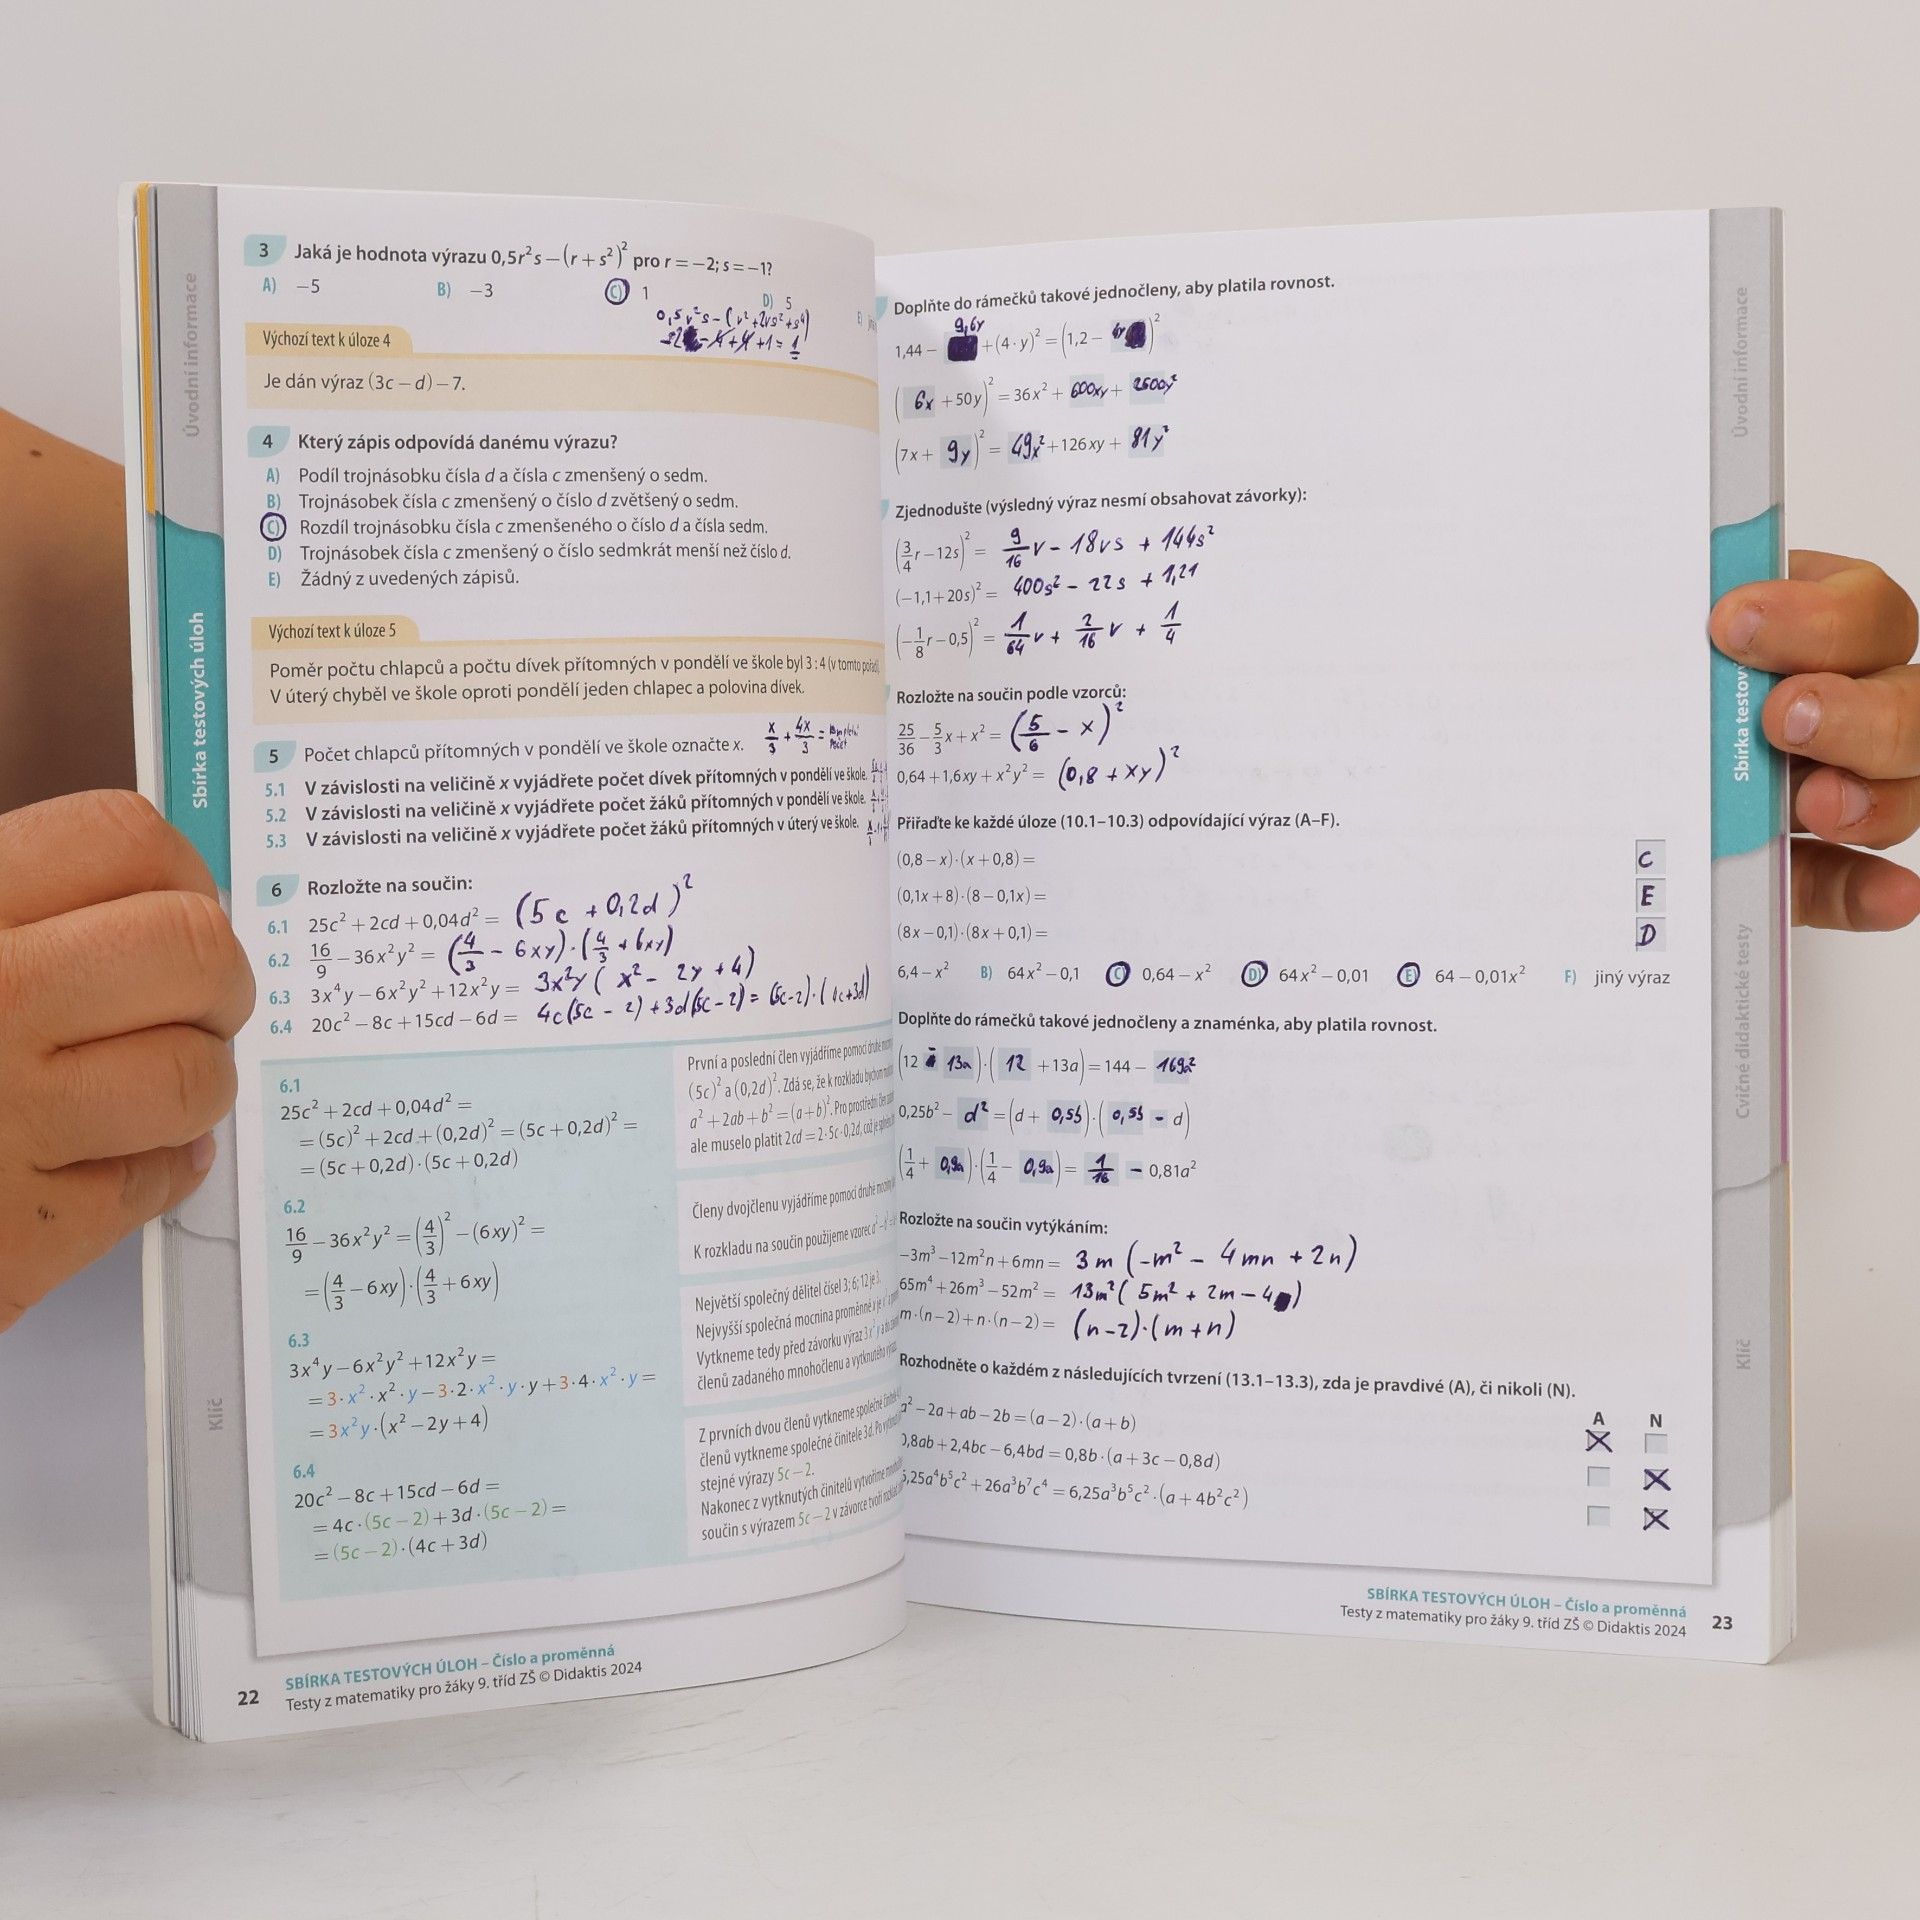 Úvodní informace
Sbírka testových úloh
Klíč
3 Jaká je hodnota výrazu 0,5r²s − (r + s²)² pro r = −2; s = −1?
A) −5 B) −3 C) 1 D) 5 E)
0,5r²s − (r² + 2rs² + s⁴)
− 4 + 4 + 1 = 1
Výchozí text k úloze 4
Je dán výraz (3c − d) − 7.
4 Který zápis odpovídá danému výrazu?
A) Podíl trojnásobku čísla d a čísla c zmenšený o sedm.
B) Trojnásobek čísla c zmenšený o číslo d zvětšený o sedm.
C) Rozdíl trojnásobku čísla c zmenšeného o číslo d a čísla sedm.
D) Trojnásobek čísla c zmenšený o číslo sedmkrát menší než číslo d.
E) Žádný z uvedených zápisů.
Výchozí text k úloze 5
Poměr počtu chlapců a počtu dívek přítomných v pondělí ve škole byl 3 : 4 (v tomto pořadí).
V úterý chyběl ve škole oproti pondělí jeden chlapec a polovina dívek.
x/3 + 4x/3 =
5 Počet chlapců přítomných v pondělí ve škole označte x.
5.1 V závislosti na veličině x vyjádřete počet dívek přítomných v pondělí ve škole.
5.2 V závislosti na veličině x vyjádřete počet žáků přítomných v pondělí ve škole.
5.3 V závislosti na veličině x vyjádřete počet žáků přítomných v úterý ve škole.
6 Rozložte na součin:
6.1 25c² + 2cd + 0,04d² = (5c + 0,2d)²
6.2 16/9 − 36x²y² = (4/3 − 6xy)·(4/3 + 6xy)
6.3 3x⁴y − 6x²y² + 12x²y = 3x²y (x² − 2y + 4)
6.4 20c² − 8c + 15cd − 6d = 4c(5c − 2) + 3d(5c − 2) = (5c − 2)·(4c + 3d)
6.1
25c² + 2cd + 0,04d² =
= (5c)² + 2cd + (0,2d)² = (5c + 0,2d)² =
= (5c + 0,2d)·(5c + 0,2d)
První a poslední člen vyjádříme pomocí druhé
(5c)² a (0,2d)². Zdá se, že k rozkladu bychom
a² + 2ab + b² = (a + b)². Pro prostřední člen
ale muselo platit 2cd = 2·5c·0,2d, což je
6.2
16/9 − 36x²y² = (4/3)² − (6xy)² =
= (4/3 − 6xy)·(4/3 + 6xy)
Členy dvojčlenu vyjádříme pomocí druhé
K rozkladu na součin použijeme vzorec
6.3
3x⁴y − 6x²y² + 12x²y =
= 3·x²·x²·y − 3·2·x²·y·y + 3·4·x²·y =
= 3x²y·(x² − 2y + 4)
Největší společný dělitel čísel 3; 6; 12 je 3.
Nejvyšší společná mocnina proměnné x je
Vytkneme tedy před závorku výraz 3x²y a do
členů zadaného mnohočlenu a vytknutého
6.4
20c² − 8c + 15cd − 6d =
= 4c·(5c − 2) + 3d·(5c − 2) =
= (5c − 2)·(4c + 3d)
Z prvních dvou členů vytkneme společné
členů vytkneme společné činitele 3d. Po
stejné výrazy 5c − 2.
Nakonec z vytknutých činitelů vytvoříme
součin s výrazem 5c − 2 v závorce tvoří
22
SBÍRKA TESTOVÝCH ÚLOH – Číslo a proměnná
Testy z matematiky pro žáky 9. tříd ZŠ © Didaktis 2024
Doplňte do rámečků takové jednočleny, aby platila rovnost.
1,44 − 9,6y + (4·y)² = (1,2 − 4y)²
(6x + 50y)² = 36x² + 600xy + 2500y²
(7x + 9y)² = 49x² + 126xy + 81y²
Zjednodušte (výsledný výraz nesmí obsahovat závorky):
(3/4 r − 12s)² = 9/16 r − 18rs + 144s²
(−1,1 + 20s)² = 400s² − 22s + 1,21
(−1/8 r − 0,5)² = 1/64 r + 2/16 r + 1/4
Rozložte na součin podle vzorců:
25/36 − 5/3 x + x² = (5/6 − x)²
0,64 + 1,6xy + x²y² = (0,8 + xy)²
Přiřaďte ke každé úloze (10.1–10.3) odpovídající výraz (A–F).
(0,8 − x)·(x + 0,8) = C
(0,1x + 8)·(8 − 0,1x) = E
(8x − 0,1)·(8x + 0,1) = D
6,4 − x² B) 64x² − 0,1 C) 0,64 − x² D) 64x² − 0,01 E) 64 − 0,01x² F) jiný výraz
Doplňte do rámečků takové jednočleny a znaménka, aby platila rovnost.
(12 − 13a)·(12 + 13a) = 144 − 169a²
0,25b² − d² = (d + 0,5b)·(0,5b − d)
(1/4 + 0,9a)·(1/4 − 0,9a) = 1/16 − 0,81a²
Rozložte na součin vytýkáním:
−3m³ − 12m²n + 6mn = 3m (−m² − 4mn + 2n)
65m⁴ + 26m³ − 52m² = 13m² (5m² + 2m − 4)
m·(n − 2) + n·(n − 2) = (n − 2)·(m + n)
Rozhodněte o každém z následujících tvrzení (13.1–13.3), zda je pravdivé (A), či nikoli (N).
A N
a² − 2a + ab − 2b = (a − 2)·(a + b)
0,8ab + 2,4bc − 6,4bd = 0,8b·(a + 3c − 0,8d)
6,25a⁴b⁵c² + 26a³b⁷c⁴ = 6,25a³b⁵c²·(a + 4b²c²)
SBÍRKA TESTOVÝCH ÚLOH – Číslo a proměnná
Testy z matematiky pro žáky 9. tříd ZŠ © Didaktis 2024
23
Úvodní informace
Sbírka testov
Cvičné didaktické testy
Klíč